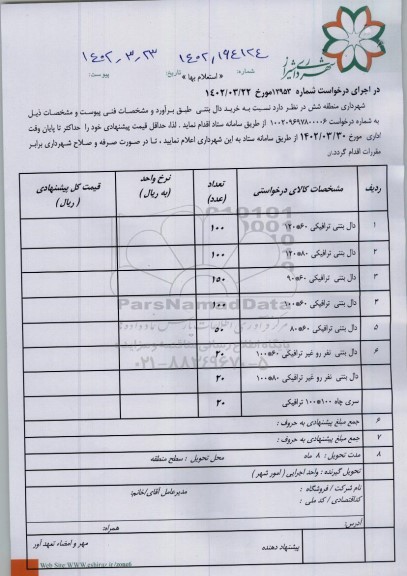 شهرداری شیراز
شماره: ۱۴۰۲/۱۹۴۱۲۴
تاریخ: ۱۴۰۲.۳.۲۳
پیوست:
« استعلام بها »
در اجرای درخواست شماره ۱۲۹۵۳ مورخ ۱۴۰۲/۰۳/۲۲
شهرداری منطقه شش در نظر دارد نسبت به خرید دال بتنی طبق برآورد و مشخصات فنی پیوست و مشخصات ذیل
به شماره درخواست ۱۰۰۲۰۹۶۹۷۸۰۰۰۰۶ از طریق سامانه ستاد اقدام نماید . لذا، حداقل قیمت پیشنهادی خود را حداکثر تا پایان وقت
اداری مورخ ۱۴۰۲/۰۳/۳۰ از طریق سامانه ستاد به این شهرداری اعلام نمایید ، تا در صورت صرفه و صلاح شهرداری برابر
مقررات اقدام گردد.
ردیف مشخصات کالای درخواستی تعداد (عدد) نرخ واحد (به ریال) قیمت کل پیشنهادی (ریال)
۱ دال بتنی ترافیکی ۶۰*۱۲۰ ۱۰۰
۲ دال بتنی ترافیکی ۸۰*۱۲۰ ۱۰۰
۳ دال بتنی ترافیکی ۶۰*۹۰ ۱۵۰
۴ دال بتنی ترافیکی ۶۰*۱۰۰ ۱۰۰
۵ دال بتنی ترافیکی ۶۰*۸۰ ۵۰
۶ دال بتنی نفر رو غیر ترافیکی ۶۰*۱۰۰ ۲۰
دال بتنی نفر رو غیر ترافیکی ۸۰*۱۰۰ ۲۰
سری چاه ۱۰۰*۱۰۰ ترافیکی ۲۰
۶ جمع مبلغ پیشنهادی به حروف :
۷ جمع مبلغ پیشنهادی به حروف :
۸ مدت تحویل : ۸ ماه محل تحویل : سطح منطقه
تحویل گیرنده : واحد اجرایی ( امور شهر )
نام شرکت / فروشگاه : مدیرعامل آقای/خانم:
کداقتصادی / کد ملی :
آدرس:
همراه:
پیشنهاد دهنده مهر و امضاء تعهد آور
ParsNamadData
۰۲۱-۸۸۳۴۹۶۷۰-۵
Web Site:WWW.eshiraz.ir/zone6